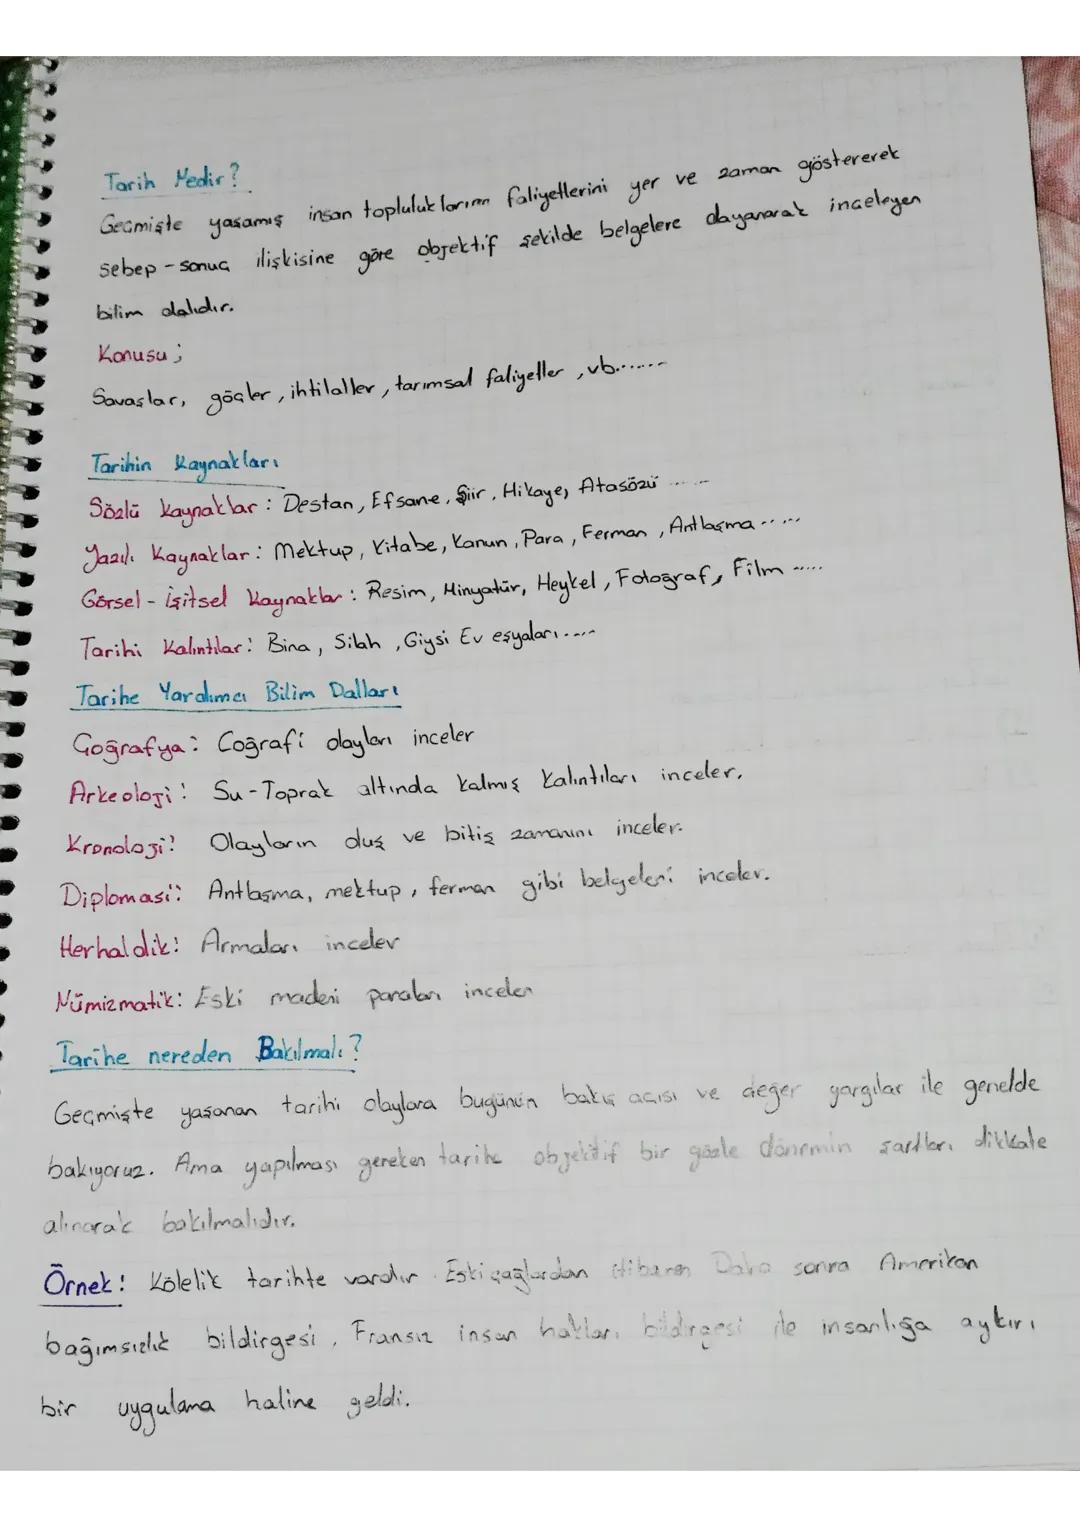 Tarih Nedir?
Geçmişte yaşamış insan topluluklarının faliyetlerini yer ve zaman göstererek
sebep-sonuç ilişkisine göre objektif şekilde belgelere dayanarak inceleyen
bilim dalıdır.
Konusu;
Savaşlar, göçler, ihtilaller, tarımsal faliyetler, vb.......
Tarihin Kaynakları
Sözlü Kaynaklar: Destan, Efsane, Şiir, Hikaye, Atasözü .....
Yazılı Kaynaklar: Mektup, Kitabe, Kanun, Para, Ferman, Antlaşma.....
Görsel-işitsel Kaynaklar: Resim, Minyatür, Heykel, Fotoğraf, Film .....
Tarihi Kalıntılar: Bina, Silah, Giysi Ev eşyaları.....
Tarihe Yardımcı Bilim Dalları
Coğrafya: Coğrafi olayları inceler
Arkeoloji: Su-Toprak altında kalmış kalıntıları inceler.
Kronoloji: Olayların oluş ve bitiş zamanını inceler.
Diplomasi: Antlaşma, mektup, ferman gibi belgeleri inceler.
Herhaldik: Armaları inceler
Nümizmatik: Eski madeni paraları inceler
Tarihe nereden Bakılmalı?
Geçmişte yaşanan tarihi olaylara bugünün bakış açısı ve değer yargılar ile genelde
bakıyoruz. Ama yapılması gereken tarihe objektif bir gözle dönemin şartları dikkate
alınarak bakılmalıdır.
Örnek: Kölelik tarihte vardır. Eski çağlardan itibaren Daha sonra Amerikan
bağımsızlık bildirgesi, Fransız insan hakları bildirgesi ile insanlığa aykırı
bir uygulama haline geldi.